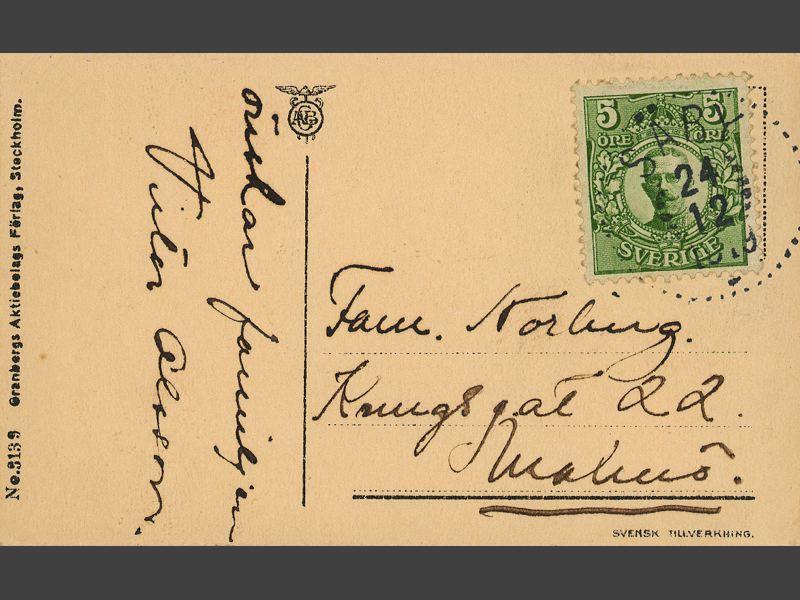 önskar familjen
Viktor Olsson.
Fam. Norling.
Kungsgat 22.
Malmö.
5 5
ÖRE ÖRE
SVERIGE
24
12
No. 3139 Granbergs Aktiebolags Förlag, Stockholm.
SVENSK TILLVERKNING.